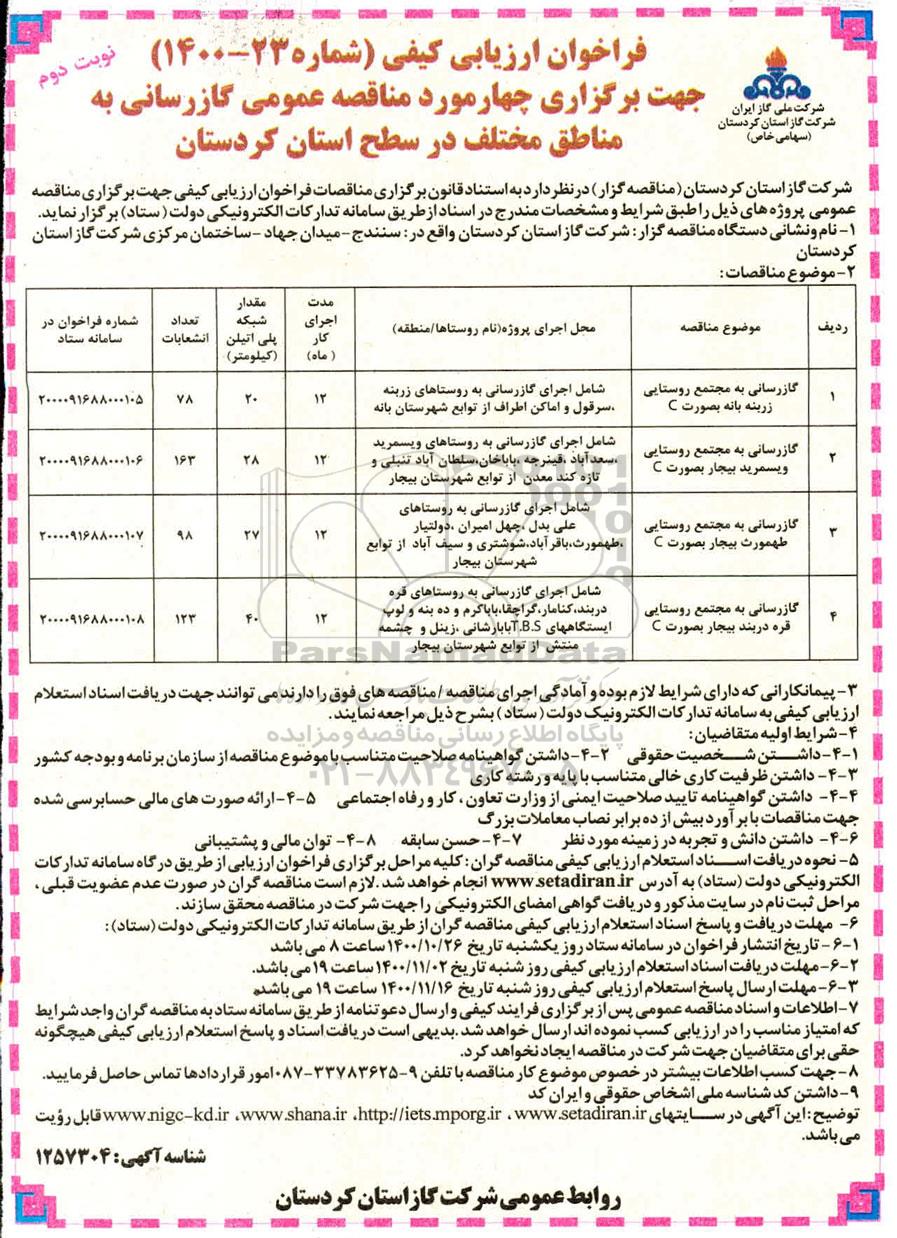 نوبت دوم
فراخوان ارزیابی کیفی (شماره ۲۳-۱۴۰۰)
جهت برگزاری چهارمورد مناقصه عمومی گازرسانی به
مناطق مختلف در سطح استان کردستان
شرکت ملی گاز ایران
شرکت گاز استان کردستان
(سهامی خاص)
شرکت گاز استان کردستان (مناقصه گزار) در نظر دارد به استناد قانون برگزاری مناقصات فراخوان ارزیابی کیفی جهت برگزاری مناقصه
عمومی پروژه های ذیل را طبق شرایط و مشخصات مندرج در اسناد از طریق سامانه تدارکات الکترونیکی دولت (ستاد) برگزار نماید.
۱- نام و نشانی دستگاه مناقصه گزار: شرکت گاز استان کردستان واقع در: سنندج-میدان جهاد -ساختمان مرکزی شرکت گاز استان
کردستان
۲-موضوع مناقصات:
ردیف | موضوع مناقصه | محل اجرای پروژه(نام روستاها/منطقه) | مدت اجرای کار (ماه) | مقدار شبکه پلی اتیلن (کیلومتر) | تعداد انشعابات | شماره فراخوان در سامانه ستاد
۱ | گازرسانی به مجتمع روستایی زربنه بانه بصورت C | شامل اجرای گازرسانی به روستاهای زربنه ،سرقول و اماکن اطراف از توابع شهرستان بانه | ۱۲ | ۲۰ | ۷۸ | ۲۰۰۰۰۹۱۶۸۸۰۰۰۱۰۵
۲ | گازرسانی به مجتمع روستایی ویسمرید بیجار بصورت C | شامل اجرای گازرسانی به روستاهای ویسمرید ،سعدآباد ،قینرجه ،باباخان،سلطان آباد تنبلی و تازه کند معدن از توابع شهرستان بیجار | ۱۲ | ۲۸ | ۱۶۳ | ۲۰۰۰۰۹۱۶۸۸۰۰۰۱۰۶
۳ | گازرسانی به مجتمع روستایی طهمورث بیجار بصورت C | شامل اجرای گازرسانی به روستاهای علی بدل ،چهل امیران ،دولتیار ،طهمورث،باقرآباد،شوشتری و سیف آباد از توابع شهرستان بیجار | ۱۲ | ۲۷ | ۹۸ | ۲۰۰۰۰۹۱۶۸۸۰۰۰۱۰۷
۴ | گازرسانی به مجتمع روستایی قره دربند بیجار بصورت C | شامل اجرای گازرسانی به روستاهای قره دربند،کنامار،گراچقا،باباکرم و ده بنه و لوپ ایستگاههای T.B.S بابارشانی ،زینل و چشمه منتش از توابع شهرستان بیجار | ۱۲ | ۴۰ | ۱۲۳ | ۲۰۰۰۰۹۱۶۸۸۰۰۰۱۰۸
ParsNamadData
پایگاه اطلاع رسانی مناقصه و مزایده
۰۲۱-۸۸۳۴۹۶۷۰-۵
۳- پیمانکارانی که دارای شرایط لازم بوده و آمادگی اجرای مناقصه / مناقصه های فوق را دارند می توانند جهت دریافت اسناد استعلام
ارزیابی کیفی به سامانه تدارکات الکترونیک دولت (ستاد) بشرح ذیل مراجعه نمایند.
۴-شرایط اولیه متقاضیان:
۴-۱-داشتن شخصیت حقوقی ۴-۲-داشتن گواهینامه صلاحیت متناسب با موضوع مناقصه از سازمان برنامه و بودجه کشور
۴-۳- داشتن ظرفیت کاری خالی متناسب با پایه و رشته کاری
۴-۴- داشتن گواهینامه تایید صلاحیت ایمنی از وزارت تعاون ، کار و رفاه اجتماعی ۴-۵-ارائه صورت های مالی حسابرسی شده
جهت مناقصات با برآورد بیش از ده برابر نصاب معاملات بزرگ
۴-۶- داشتن دانش و تجربه در زمینه مورد نظر ۴-۷-حسن سابقه ۴-۸- توان مالی و پشتیبانی
۵- نحوه دریافت اسناد استعلام ارزیابی کیفی مناقصه گران: کلیه مراحل برگزاری فراخوان ارزیابی از طریق درگاه سامانه تدارکات
الکترونیکی دولت (ستاد) به آدرس www.setadiran.ir انجام خواهد شد .لازم است مناقصه گران در صورت عدم عضویت قبلی ،
مراحل ثبت نام در سایت مذکور و دریافت گواهی امضای الکترونیکی را جهت شرکت در مناقصه محقق سازند.
۶- مهلت دریافت و پاسخ اسناد استعلام ارزیابی کیفی مناقصه گران از طریق سامانه تدارکات الکترونیکی دولت (ستاد):
۶-۱- تاریخ انتشار فراخوان در سامانه ستاد روز یکشنبه تاریخ ۱۴۰۰/۱۰/۲۶ ساعت ۸ می باشد
۶-۲-مهلت دریافت اسناد استعلام ارزیابی کیفی روز شنبه تاریخ ۱۴۰۰/۱۱/۰۲ ساعت ۱۹ می باشد.
۶-۳-مهلت ارسال پاسخ استعلام ارزیابی کیفی روز شنبه تاریخ ۱۴۰۰/۱۱/۱۶ ساعت ۱۹ می باشد.
۷-اطلاعات و اسناد مناقصه عمومی پس از برگزاری فرایند کیفی و ارسال دعوتنامه از طریق سامانه ستاد به مناقصه گران واجد شرایط
که امتیاز مناسب را در ارزیابی کسب نموده اند ارسال خواهد شد .بدیهی است دریافت اسناد و پاسخ استعلام ارزیابی کیفی هیچگونه
حقی برای متقاضیان جهت شرکت در مناقصه ایجاد نخواهد کرد.
۸-جهت کسب اطلاعات بیشتر در خصوص موضوع کار مناقصه با تلفن ۹-۰۸۷-۳۳۷۸۳۶۲۵ امور قراردادها تماس حاصل فرمایید.
۹-داشتن کد شناسه ملی اشخاص حقوقی و ایران کد
توضیح: این آگهی در سایتهای www.setadiran.ir ، http://iets.mporg.ir، www.shana.ir، www.nigc-kd.ir قابل رؤیت
می باشد.
شناسه آگهی: ۱۲۵۷۳۰۴
روابط عمومی شرکت گاز استان کردستان